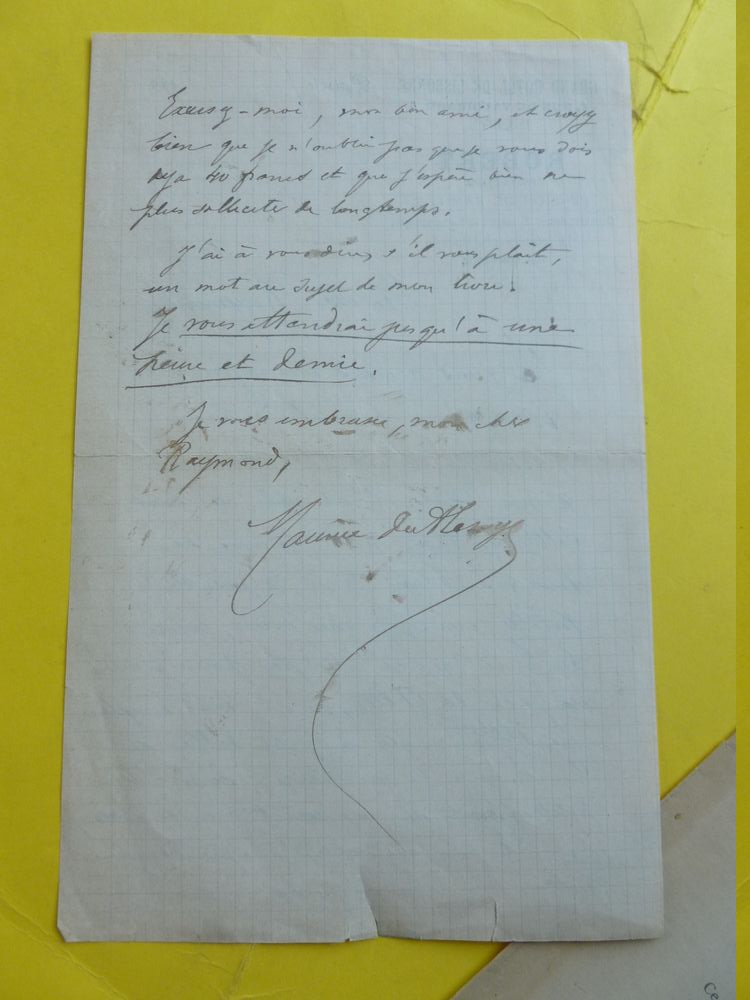 Excusez-moi, mon bon ami, et croyez
bien que je n'oublie pas que je vous dois
déjà 40 francs et que j'espère bien ne
plus solliciter de longtemps.
J'ai à vous dire, s'il vous plaît,
un mot au sujet de mon livre.
Je vous attendrai jusqu'à une
heure et demie.
Je vous embrasse, mon cher
Raymond,
Maurice du Plessys
GRAND HOTEL DE LISBONNE
Ce